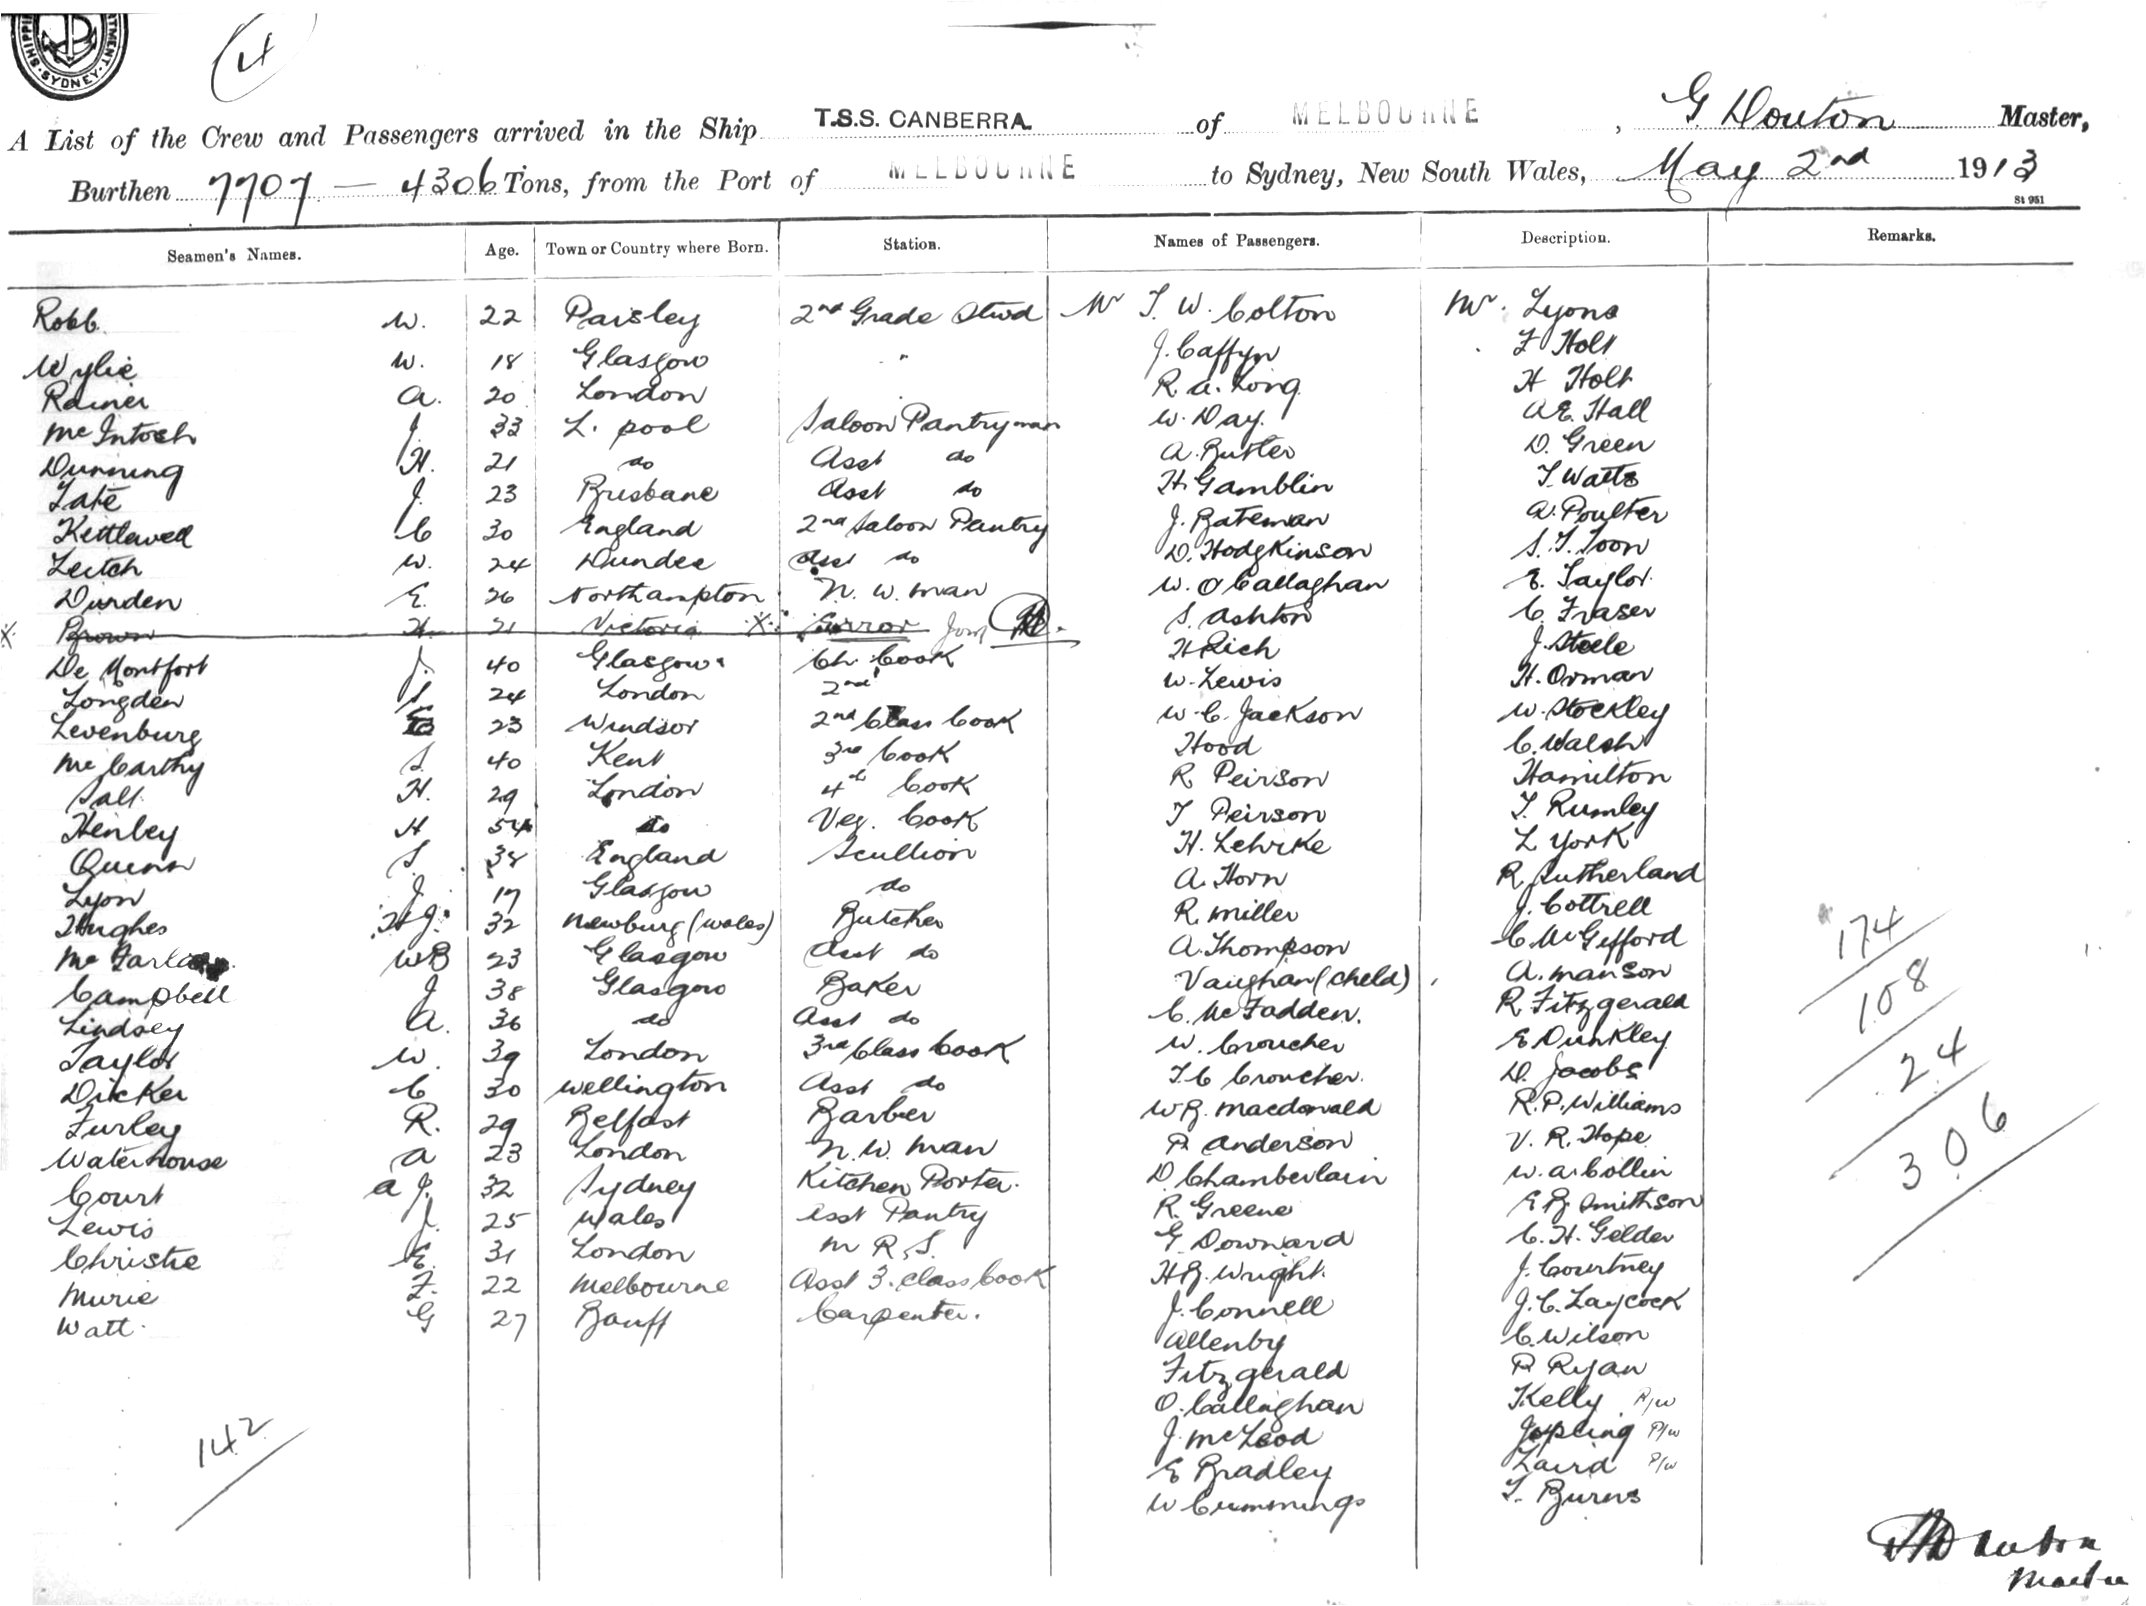 SHIPPI MENT. SYDNEY.
4
A List of the Crew and Passengers arrived in the Ship T.S.S. CANBERRA. of MELBOURNE, G. Douton Master,
Burthen 7707 — 4306 Tons, from the Port of MELBOURNE to Sydney, New South Wales, May 2nd 1913
St 951
Seamen's Names. Age. Town or Country where Born. Station. Names of Passengers. Description. Remarks.
Robb. W. 22 Paisley 2nd Grade Stwd Mr T. W. Colton Mr. Lyons
Wylie W. 18 Glasgow " J. Caffyn F Holt
Rainer A. 20 London R. A. Long H Holt
McIntosh J. 33 L. pool Saloon Pantryman W. Day. A E. Hall
Dunning H. 21 do Asst do A. Butler D. Green
Tate J. 23 Brisbane Asst do H. Gamblin T. Watts
Kettlewell C 30 England 2nd Saloon Pantry J. Bateman A. Poulter
Leitch W. 24 Dundee Asst do D. Hodgkinson S. T. Toon
Durden E. 26 Northampton N. W. man W. O Callaghan E. Taylor.
X. Brown H. 21 Victoria X. Error S. Ashton C. Fraser
De Montfort J. 40 Glasgow. Ch. Cook H Rich J. Steele
Longden S 24 London 2nd W. Lewis H. Orman
Levenburg E 23 Windsor 2nd Class Cook W. C. Jackson W. Stockley
McCarthy S. 40 Kent 3rd Cook Hood C. Walsh
Salt. H. 29 London 4th Cook R. Peirson Hamilton
Henley H 54 do Veg. Cook T Peirson T. Rumley
Quinn S. 38 England Scullion H. Lehrke L York
Lyon J. 17 Glasgow do A. Horn R. Sutherland
Hughes H J. 32 Newburg (Wales) Butcher R. Miller J. Cottrell
McFarla W B 23 Glasgow Asst do A. Thompson C. McGifford
Campbell J 38 Glasgow Baker Vaughan (Child) A. Manson
Lindsey A. 36 do Asst do C. McFadden. R. Fitzgerald
Taylor W. 39 London 3rd Class Cook W. Croucher E Dunkley
Dicker C 30 Wellington Asst do T. C Croucher. D. Jacobs
Furley R. 29 Belfast Barber W B. Macdonald R. P. Williams
Waterhouse A 23 London N. W. Man P. Anderson V. R. Hope
Court A J. 32 Sydney Kitchen Porter. D Chamberlain W. A. Collin
Lewis J. 25 Wales Asst Pantry R. Greene E B. Smithson
Christie E. 31 London M R. S. G. Downard C. H. Gelder
Murie F. 22 Melbourne Asst 3. Class Cook H B. Wright. J. Courtney
Watt. G 27 Banff Carpenter. J. Connell J. C. Laycock
Allenby C. Wilson
Fitzgerald P. Ryan
O. Callaghan Kelly P/W
J. McLeod Jopling P/W
E Bradley Laird P/W
W Cummings T. Burns
174
108
24
306
142
Douton
Master